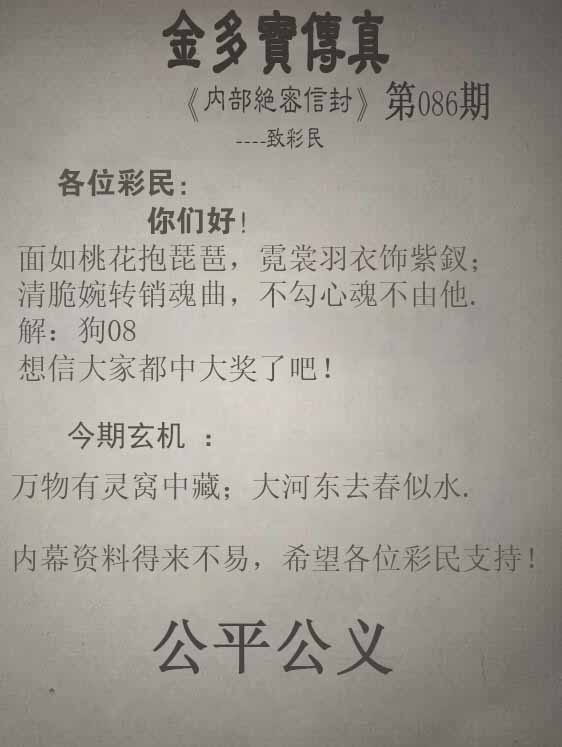 金多寶傳真
《内部絕密信封》第086期
----致彩民
各位彩民:
你们好!
面如桃花抱琵琶，霓裳羽衣饰紫釵;
清脆婉转销魂曲，不勾心魂不由他.
解：狗08
想信大家都中大奖了吧!
今期玄机 ：
万物有灵窝中藏；大河东去春似水.
内幕资料得来不易，希望各位彩民支持!
公平公义